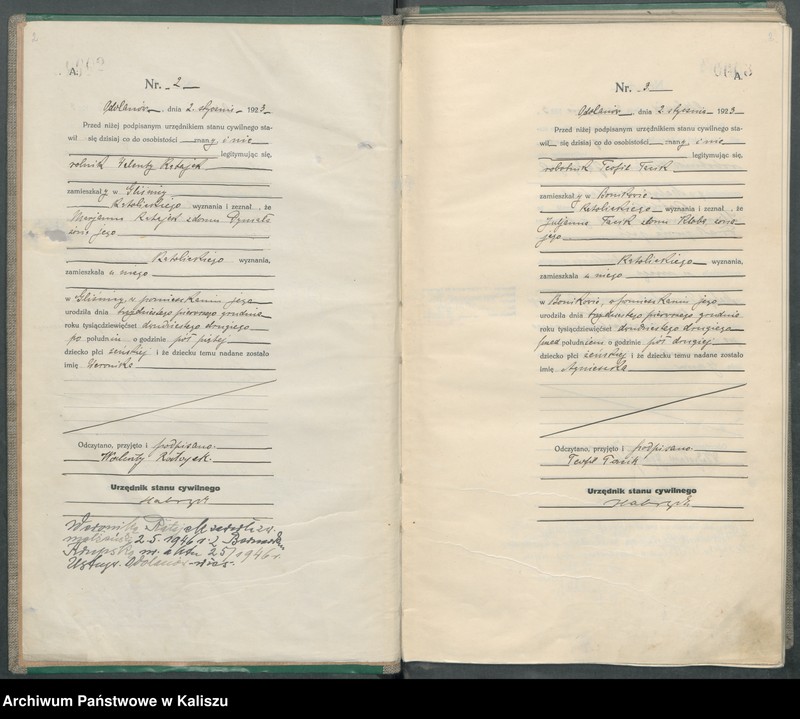 2
A.
Nr. 2
Odolanów, dnia 2. stycznia 1923
Przed niżej podpisanym urzędnikiem stanu cywilnego sta-
wił się dzisiaj co do osobistości znany i nie
legitymując się,
rolnik Walenty Ratajek
zamieszkały w Gliśnicy
katolickiego wyznania i zeznał, że
Marjanna Ratajek z domu
żona jego
katolickiego wyznania,
zamieszkała u niego
w Gliśnicy, w pomieszkaniu jego
urodziła dnia trzydziestego pierwszego grudnia
roku tysiącdziewięćset dwudziestego drugiego
po południu o godzinie pół piątej
dziecko płci żeńskiej i że dziecku temu nadane zostało
imię Weronika
Odczytano, przyjęto i podpisano.
Walenty Ratajek.
Urzędnik stanu cywilnego
Weronika zawarła zw.
małżeński 2.5. 1946 r. z
nr. aktu 25/1946 r.
Odolanów-wieś.
A.
Nr. 3
Odolanów, dnia 2 stycznia 1923
Przed niżej podpisanym urzędnikiem stanu cywilnego sta-
wił się dzisiaj co do osobistości znany i nie
legitymując się,
robotnik Teofil
zamieszkały w Bonikowie
katolickiego wyznania i zeznał, że
Juljanna z domu żona
jego
katolickiego wyznania,
zamieszkała u niego
w Bonikowie, w pomieszkaniu jego
urodziła dnia trzydziestego pierwszego grudnia
roku tysiącdziewięćset dwudziestego drugiego
przed południem o godzinie pół drugiej
dziecko płci żeńskiej i że dziecku temu nadane zostało
imię Agnieszka
Odczytano, przyjęto i podpisano.
Teofil
Urzędnik stanu cywilnego
Archiwum Państwowe w Kaliszu